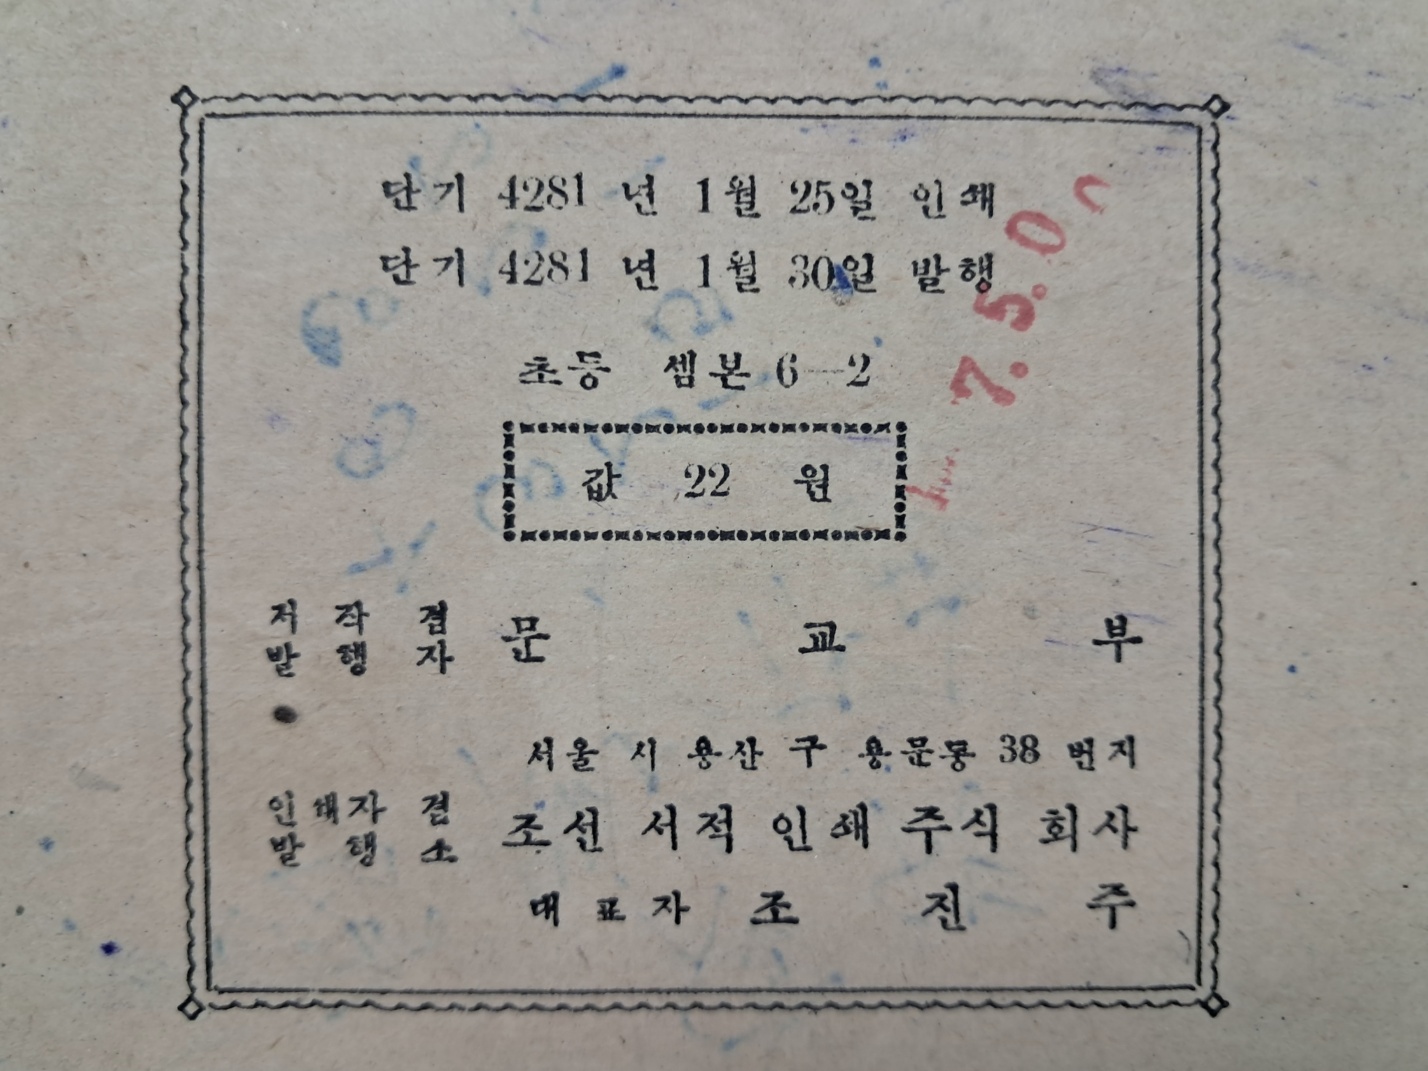 단기 4281 년 1월 25일 인쇄
단기 4281 년 1월 30일 발행
초등 셈본 6—2
값 22 원
저 작 겸
발 행 자
문 교 부
서울 시 용산 구 용문동 38 번지
인쇄자 겸
발 행 소
조선 서적 인쇄 주식 회사
대 표 자 조 진 주
7.5.0